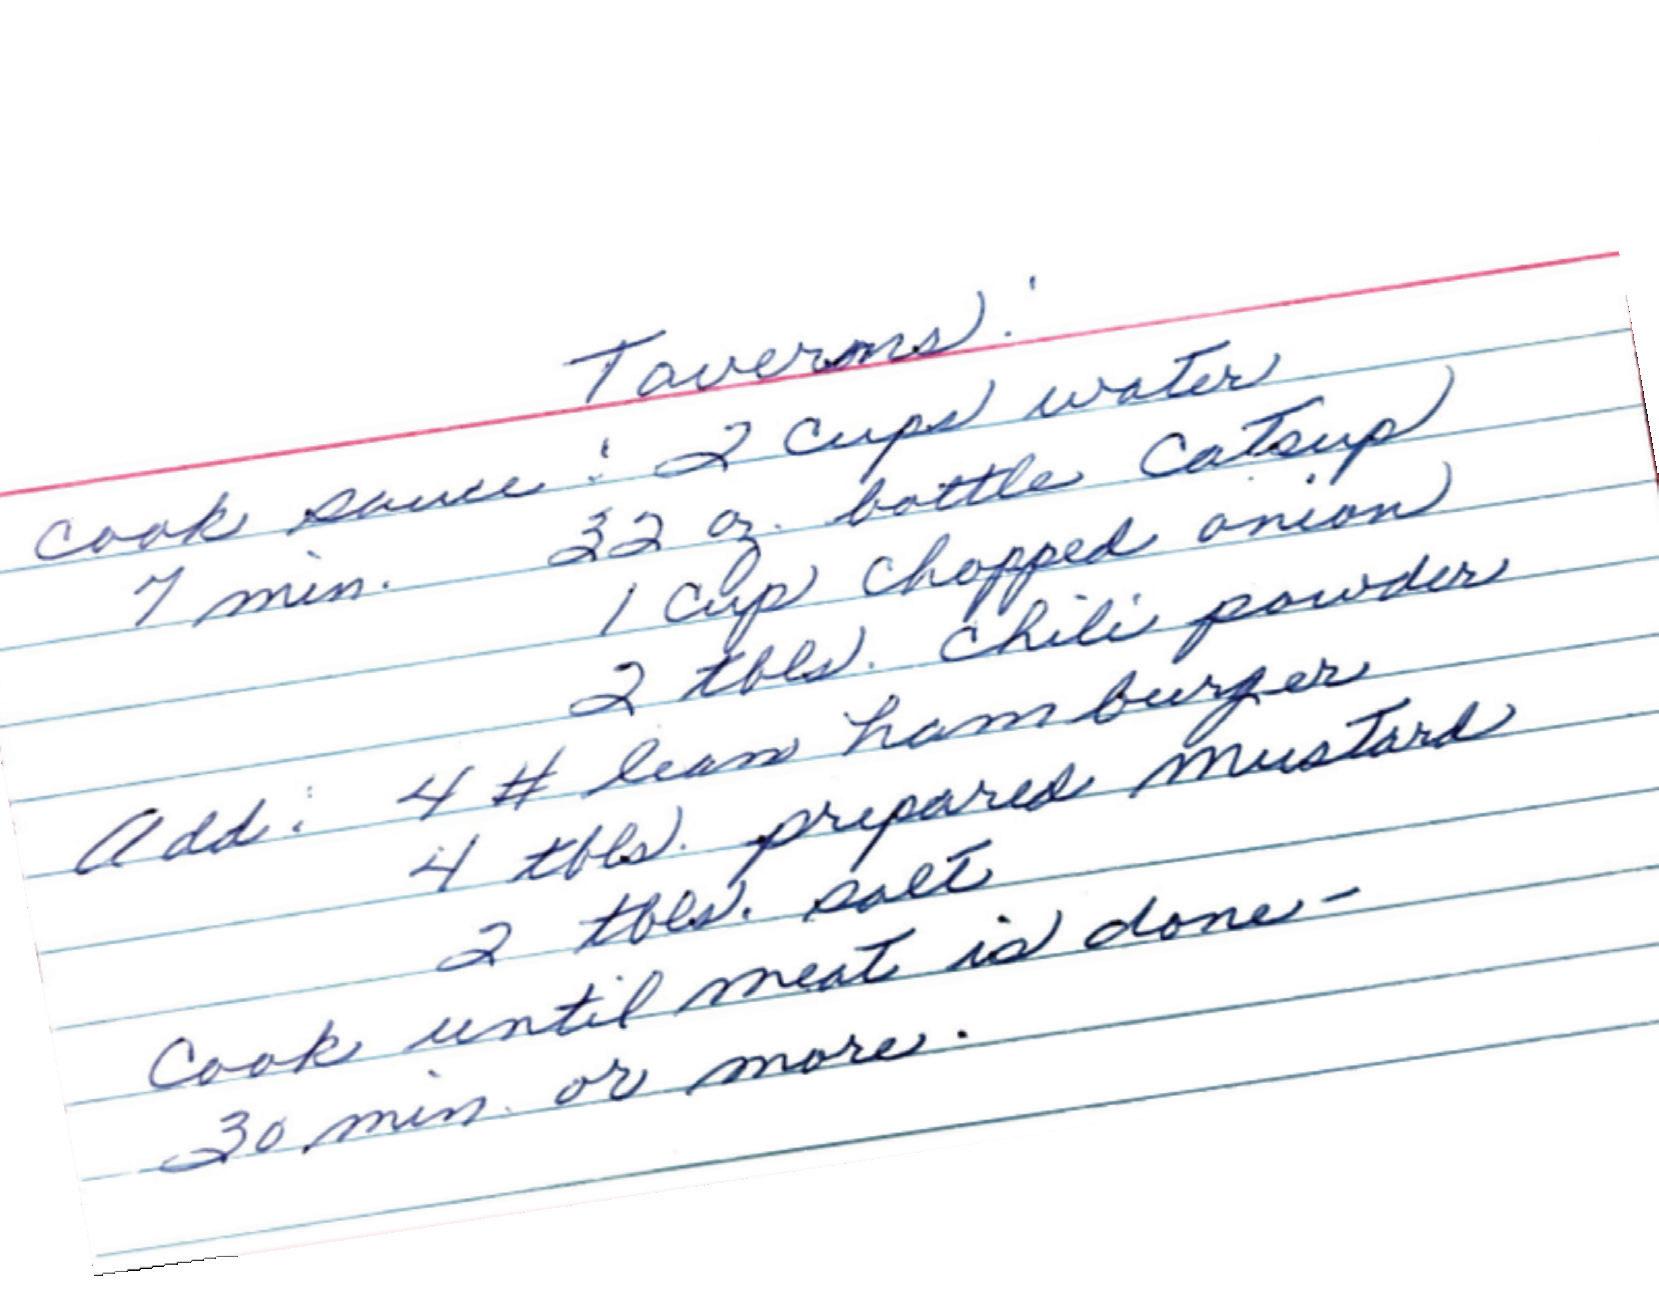 Taverns:
Cook sauce: 2 cups water
7 min. 32 oz. bottle Catsup
1 cup chopped onion
2 tbls. chili powder
Add: 4 # lean hamburger
4 tbls. prepared mustard
2 tbls. salt
Cook until meat is done -
30 min. or more.